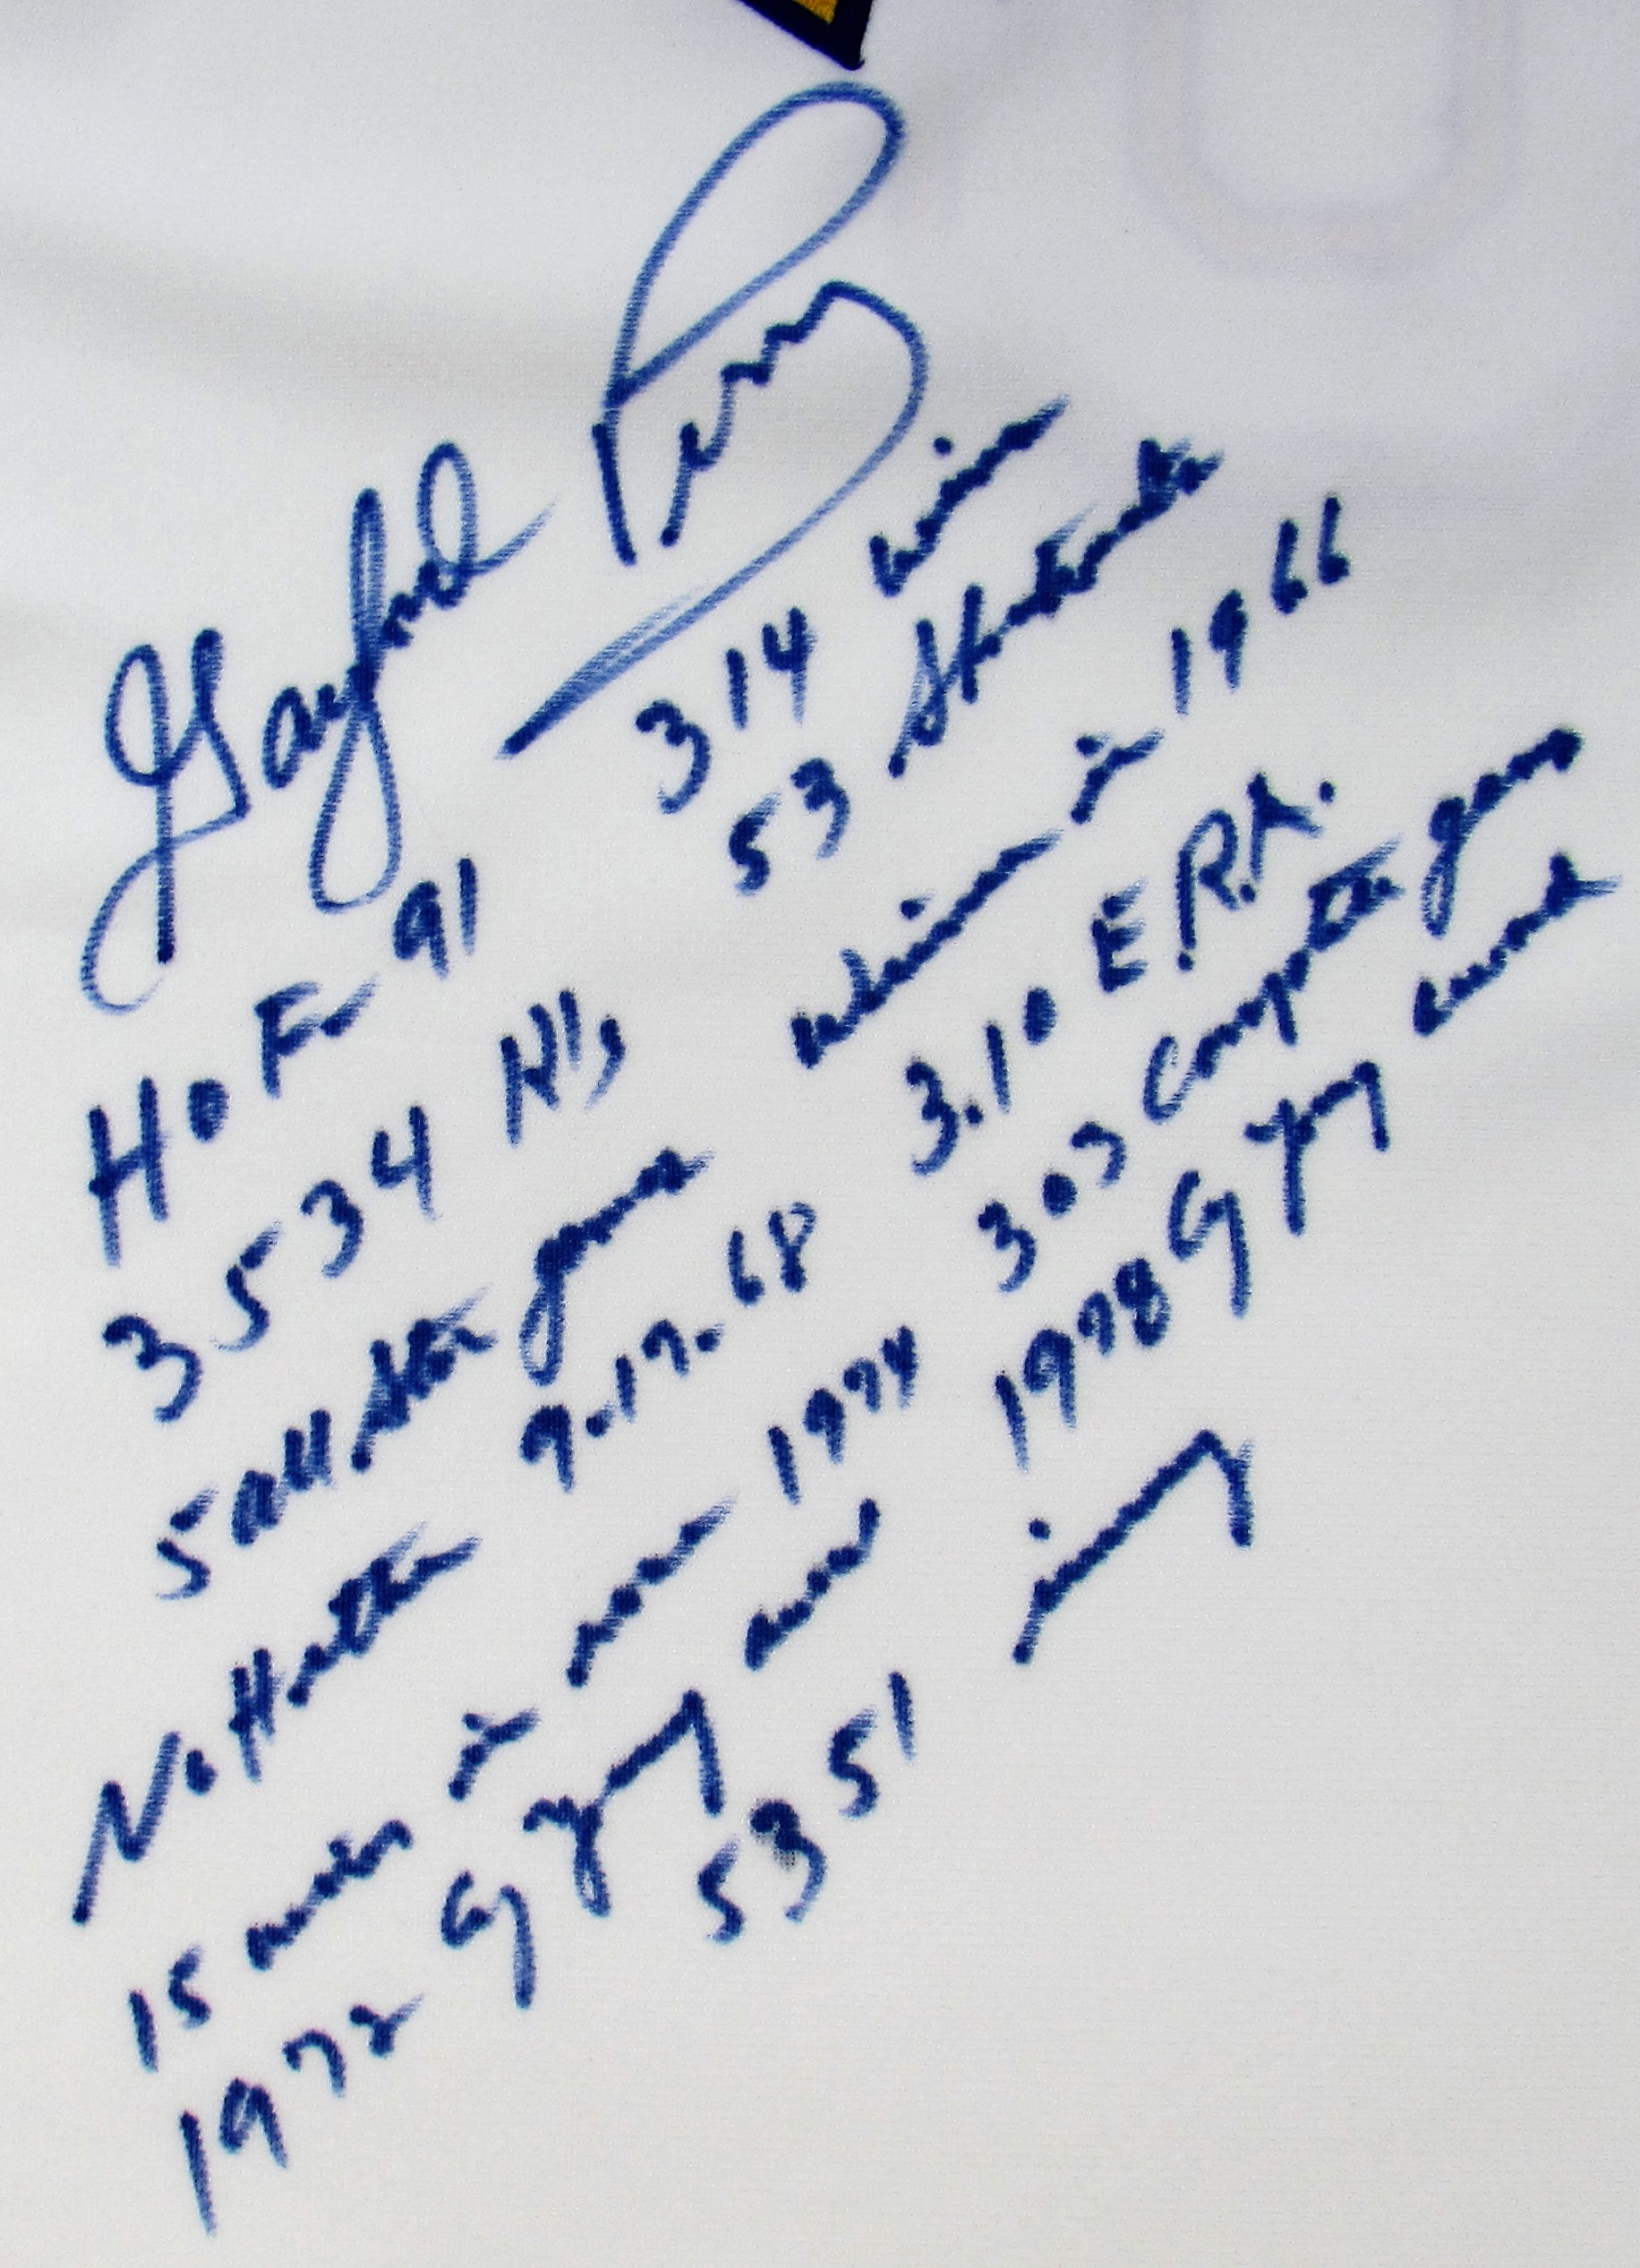 Gaylord Perry
HOF 91
3534 K's
5 all star games
No Hitter 9-17-68
15 wins in row 1974
1972 Cy Young award
314 wins
53 Shutouts
in 1966
3.10 E.R.A.
303 Complete games
1978 Cy Young award
5351 inning